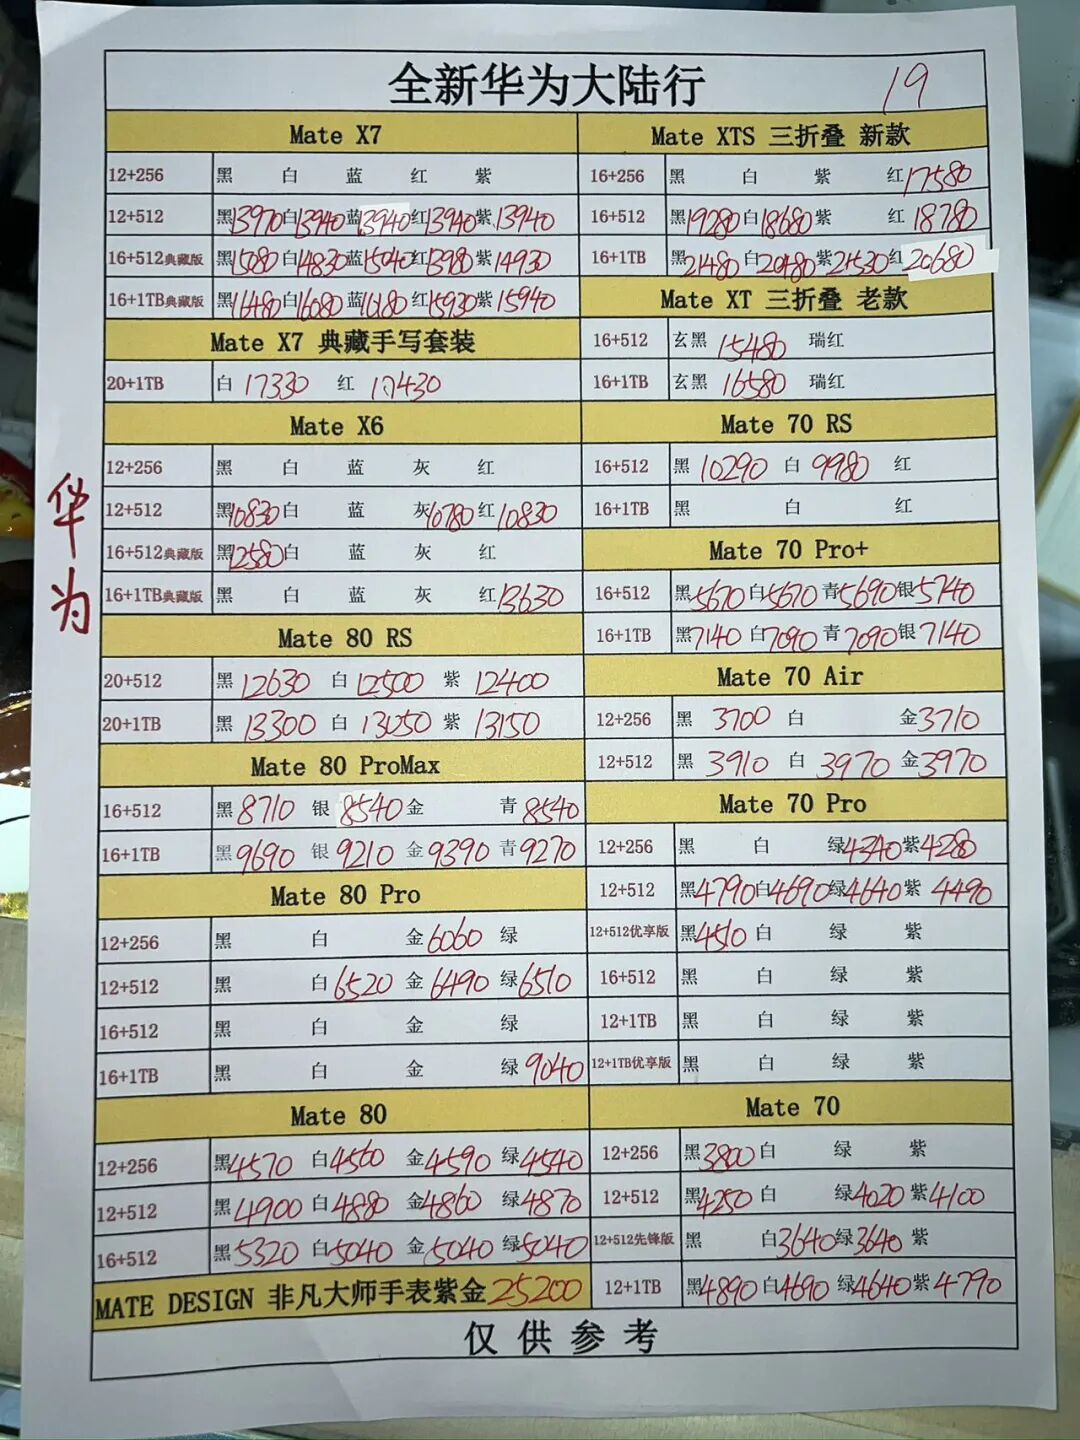 全新华为大陆行 19
华为
Mate X7
12+256 黑 白 蓝 红 紫
12+512 黑13970 白13940 蓝13940 红13940 紫13940
16+512典藏版 黑15080 白14830 蓝15040 红13980 紫14930
16+1TB典藏版 黑16480 白16080 蓝16180 红15930 紫15940
Mate X7 典藏手写套装
20+1TB 白 17330 红 17430
Mate X6
12+256 黑 白 蓝 灰 红
12+512 黑10830 白 蓝 灰10780 红10830
16+512典藏版 黑12580 白 蓝 灰 红
16+1TB典藏版 黑 白 蓝 灰 红13630
Mate 80 RS
20+512 黑 12630 白 12500 紫 12400
20+1TB 黑 13300 白 13050 紫 13150
Mate 80 ProMax
16+512 黑 8710 银 8540 金 青 8540
16+1TB 黑 9690 银 9210 金 9390 青 9270
Mate 80 Pro
12+256 黑 白 金 6060 绿
12+512 黑 白 6520 金 6490 绿 6510
16+512 黑 白 金 绿
16+1TB 黑 白 金 绿 9040
Mate 80
12+256 黑4570 白4560 金4590 绿4540
12+512 黑4900 白4880 金4860 绿4870
16+512 黑5320 白5040 金5040 绿5040
MATE DESIGN 非凡大师手表紫金 25200
Mate XTS 三折叠 新款
16+256 黑 白 紫 红17580
16+512 黑19280 白18680 紫 红 18780
16+1TB 黑21480 白20480 紫21530 红20680
Mate XT 三折叠 老款
16+512 玄黑 15480 瑞红
16+1TB 玄黑 16580 瑞红
Mate 70 RS
16+512 黑 10290 白 9980 红
16+1TB 黑 白 红
Mate 70 Pro+
16+512 黑5670 白5670 青5690 银5740
16+1TB 黑7140 白7090 青7090 银7140
Mate 70 Air
12+256 黑 3700 白 金3710
12+512 黑 3910 白 3970 金3970
Mate 70 Pro
12+256 黑 白 绿4340 紫4280
12+512 黑4790 白4690 绿4640 紫 4490
12+512优享版 黑4510 白 绿 紫
16+512 黑 白 绿 紫
12+1TB 黑 白 绿 紫
12+1TB优享版 黑 白 绿 紫
Mate 70
12+256 黑3800 白 绿 紫
12+512 黑4250 白 绿4020 紫4100
12+512先锋版 黑 白3640 绿3640 紫
12+1TB 黑4890 白4690 绿4640 紫4790
仅供参考